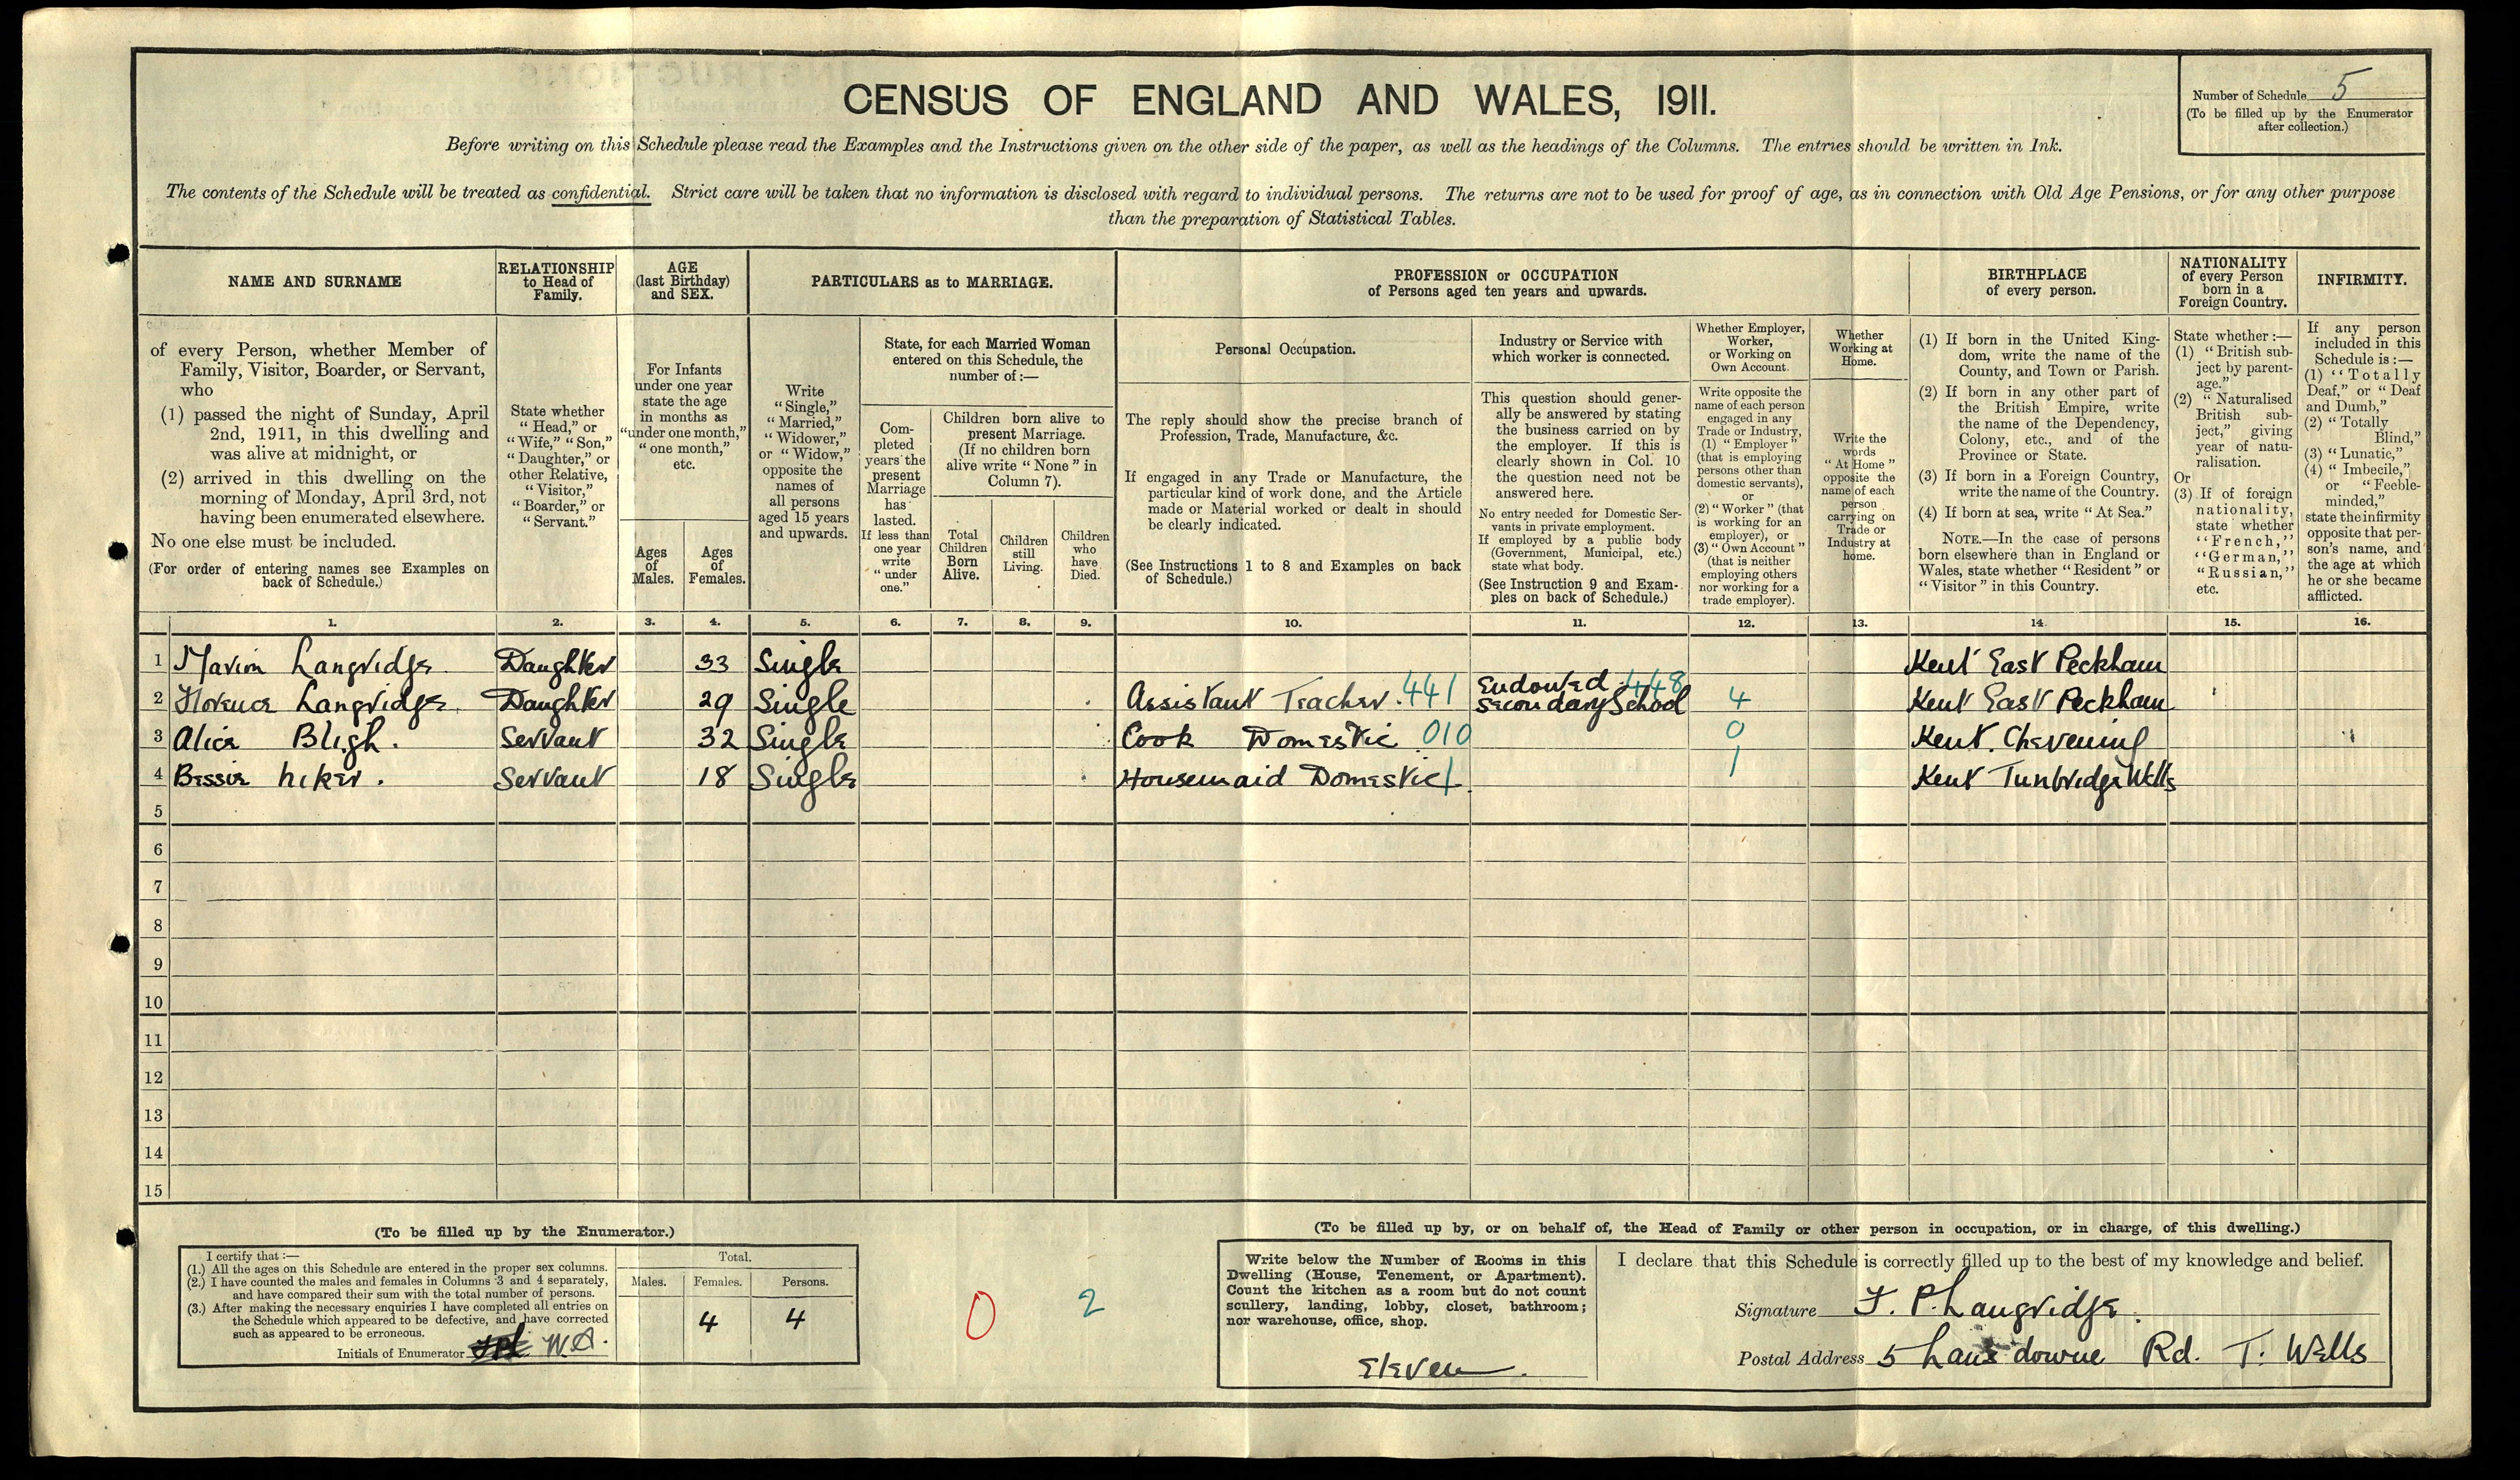 CENSUS OF ENGLAND AND WALES, 1911.
Number of Schedule 5
(To be filled up by the Enumerator
after collection.)
Before writing on this Schedule please read the Examples and the Instructions given on the other side of the paper, as well as the headings of the Columns. The entries should be written in Ink.
The contents of the Schedule will be treated as confidential. Strict care will be taken that no information is disclosed with regard to individual persons. The returns are not to be used for proof of age, as in connection with Old Age Pensions, or for any other purpose
than the preparation of Statistical Tables.
NAME AND SURNAME
of every Person, whether Member of
Family, Visitor, Boarder, or Servant,
who
(1) passed the night of Sunday, April
2nd, 1911, in this dwelling and
was alive at midnight, or
(2) arrived in this dwelling on the
morning of Monday, April 3rd, not
having been enumerated elsewhere.
No one else must be included.
(For order of entering names see Examples on
back of Schedule.)
RELATIONSHIP
to Head of
Family.
State whether
"Head," or
"Wife," "Son,"
"Daughter," or
other Relative,
"Visitor,"
"Boarder," or
"Servant."
AGE
(last Birthday)
and SEX.
For Infants
under one year
state the age
in months as
"under one month,"
"one month,"
etc.
Ages
of
Males.
Ages
of
Females.
PARTICULARS as to MARRIAGE.
Write
"Single,"
"Married,"
"Widower,"
or "Widow,"
opposite the
names of
all persons
aged 15 years
and upwards.
State, for each Married Woman
entered on this Schedule, the
number of:—
Com-
pleted
years the
present
Marriage
has
lasted.
If less than
one year
write
"under
one."
Children born alive to
present Marriage.
(If no children born
alive write "None" in
Column 7).
Total
Children
Born
Alive.
Children
still
Living.
Children
who
have
Died.
PROFESSION or OCCUPATION
of Persons aged ten years and upwards.
Personal Occupation.
The reply should show the precise branch of
Profession, Trade, Manufacture, &c.
If engaged in any Trade or Manufacture, the
particular kind of work done, and the Article
made or Material worked or dealt in should
be clearly indicated.
(See Instructions 1 to 8 and Examples on back
of Schedule.)
Industry or Service with
which worker is connected.
This question should gener-
ally be answered by stating
the business carried on by
the employer. If this is
clearly shown in Col. 10
the question need not be
answered here.
No entry needed for Domestic Ser-
vants in private employment.
If employed by a public body
(Government, Municipal, etc.)
state what body.
(See Instruction 9 and Exam-
ples on back of Schedule.)
Whether Employer,
Worker,
or Working on
Own Account.
Write opposite the
name of each person
engaged in any
Trade or Industry,
(1) "Employer"
(that is employing
persons other than
domestic servants),
or
(2) "Worker" (that
is working for an
employer), or
(3) "Own Account"
(that is neither
employing others
nor working for a
trade employer).
Whether
Working at
Home.
Write the
words
"At Home"
opposite the
name of each
person
carrying on
Trade or
Industry at
home.
BIRTHPLACE
of every person.
(1) If born in the United King-
dom, write the name of the
County, and Town or Parish.
(2) If born in any other part of
the British Empire, write
the name of the Dependency,
Colony, etc., and of the
Province or State.
(3) If born in a Foreign Country,
write the name of the Country.
(4) If born at sea, write "At Sea."
NOTE.—In the case of persons
born elsewhere than in England or
Wales, state whether "Resident" or
"Visitor" in this Country.
NATIONALITY
of every Person
born in a
Foreign Country.
State whether:—
(1) "British sub-
ject by parent-
age."
(2) "Naturalised
British sub-
ject," giving
year of natu-
ralisation.
Or
(3) If of foreign
nationality,
state whether
"French,"
"German,"
"Russian,"
etc.
INFIRMITY.
If any person
included in this
Schedule is:—
(1) "Totally
Deaf," or "Deaf
and Dumb,"
(2) "Totally
Blind,"
(3) "Lunatic,"
(4) "Imbecile,"
or "Feeble-
minded,"
state the infirmity
opposite that per-
son's name, and
the age at which
he or she became
afflicted.
1. 2. 3. 4. 5. 6. 7. 8. 9. 10. 11. 12. 13. 14. 15. 16.
1 Langridge Daughter 33 Single Kent East Peckham
2 Florence Langridge Daughter 29 Single Assistant Teacher. 441 Endowed 448 Secondary School 4 Kent East Peckham
3 Alice Bligh. Servant 32 Single Cook Domestic 010 0 Kent. Chevening
4 Bessie Servant 18 Single Housemaid Domestic 1 1 Kent Tunbridge Wells
5
6
7
8
9
10
11
12
13
14
15
(To be filled up by the Enumerator.)
I certify that:—
(1.) All the ages on this Schedule are entered in the proper sex columns.
(2.) I have counted the males and females in Columns 3 and 4 separately,
and have compared their sum with the total number of persons.
(3.) After making the necessary enquiries I have completed all entries on
the Schedule which appeared to be defective, and have corrected
such as appeared to be erroneous.
Initials of Enumerator W.A.
Total.
Males. Females. Persons.
4 4
0 2
(To be filled up by, or on behalf of, the Head of Family or other person in occupation, or in charge, of this dwelling.)
Write below the Number of Rooms in this
Dwelling (House, Tenement, or Apartment).
Count the kitchen as a room but do not count
scullery, landing, lobby, closet, bathroom;
nor warehouse, office, shop.
Eleven.
I declare that this Schedule is correctly filled up to the best of my knowledge and belief.
Signature F. P. Langridge.
Postal Address 5 Lansdowne Rd. T. Wells